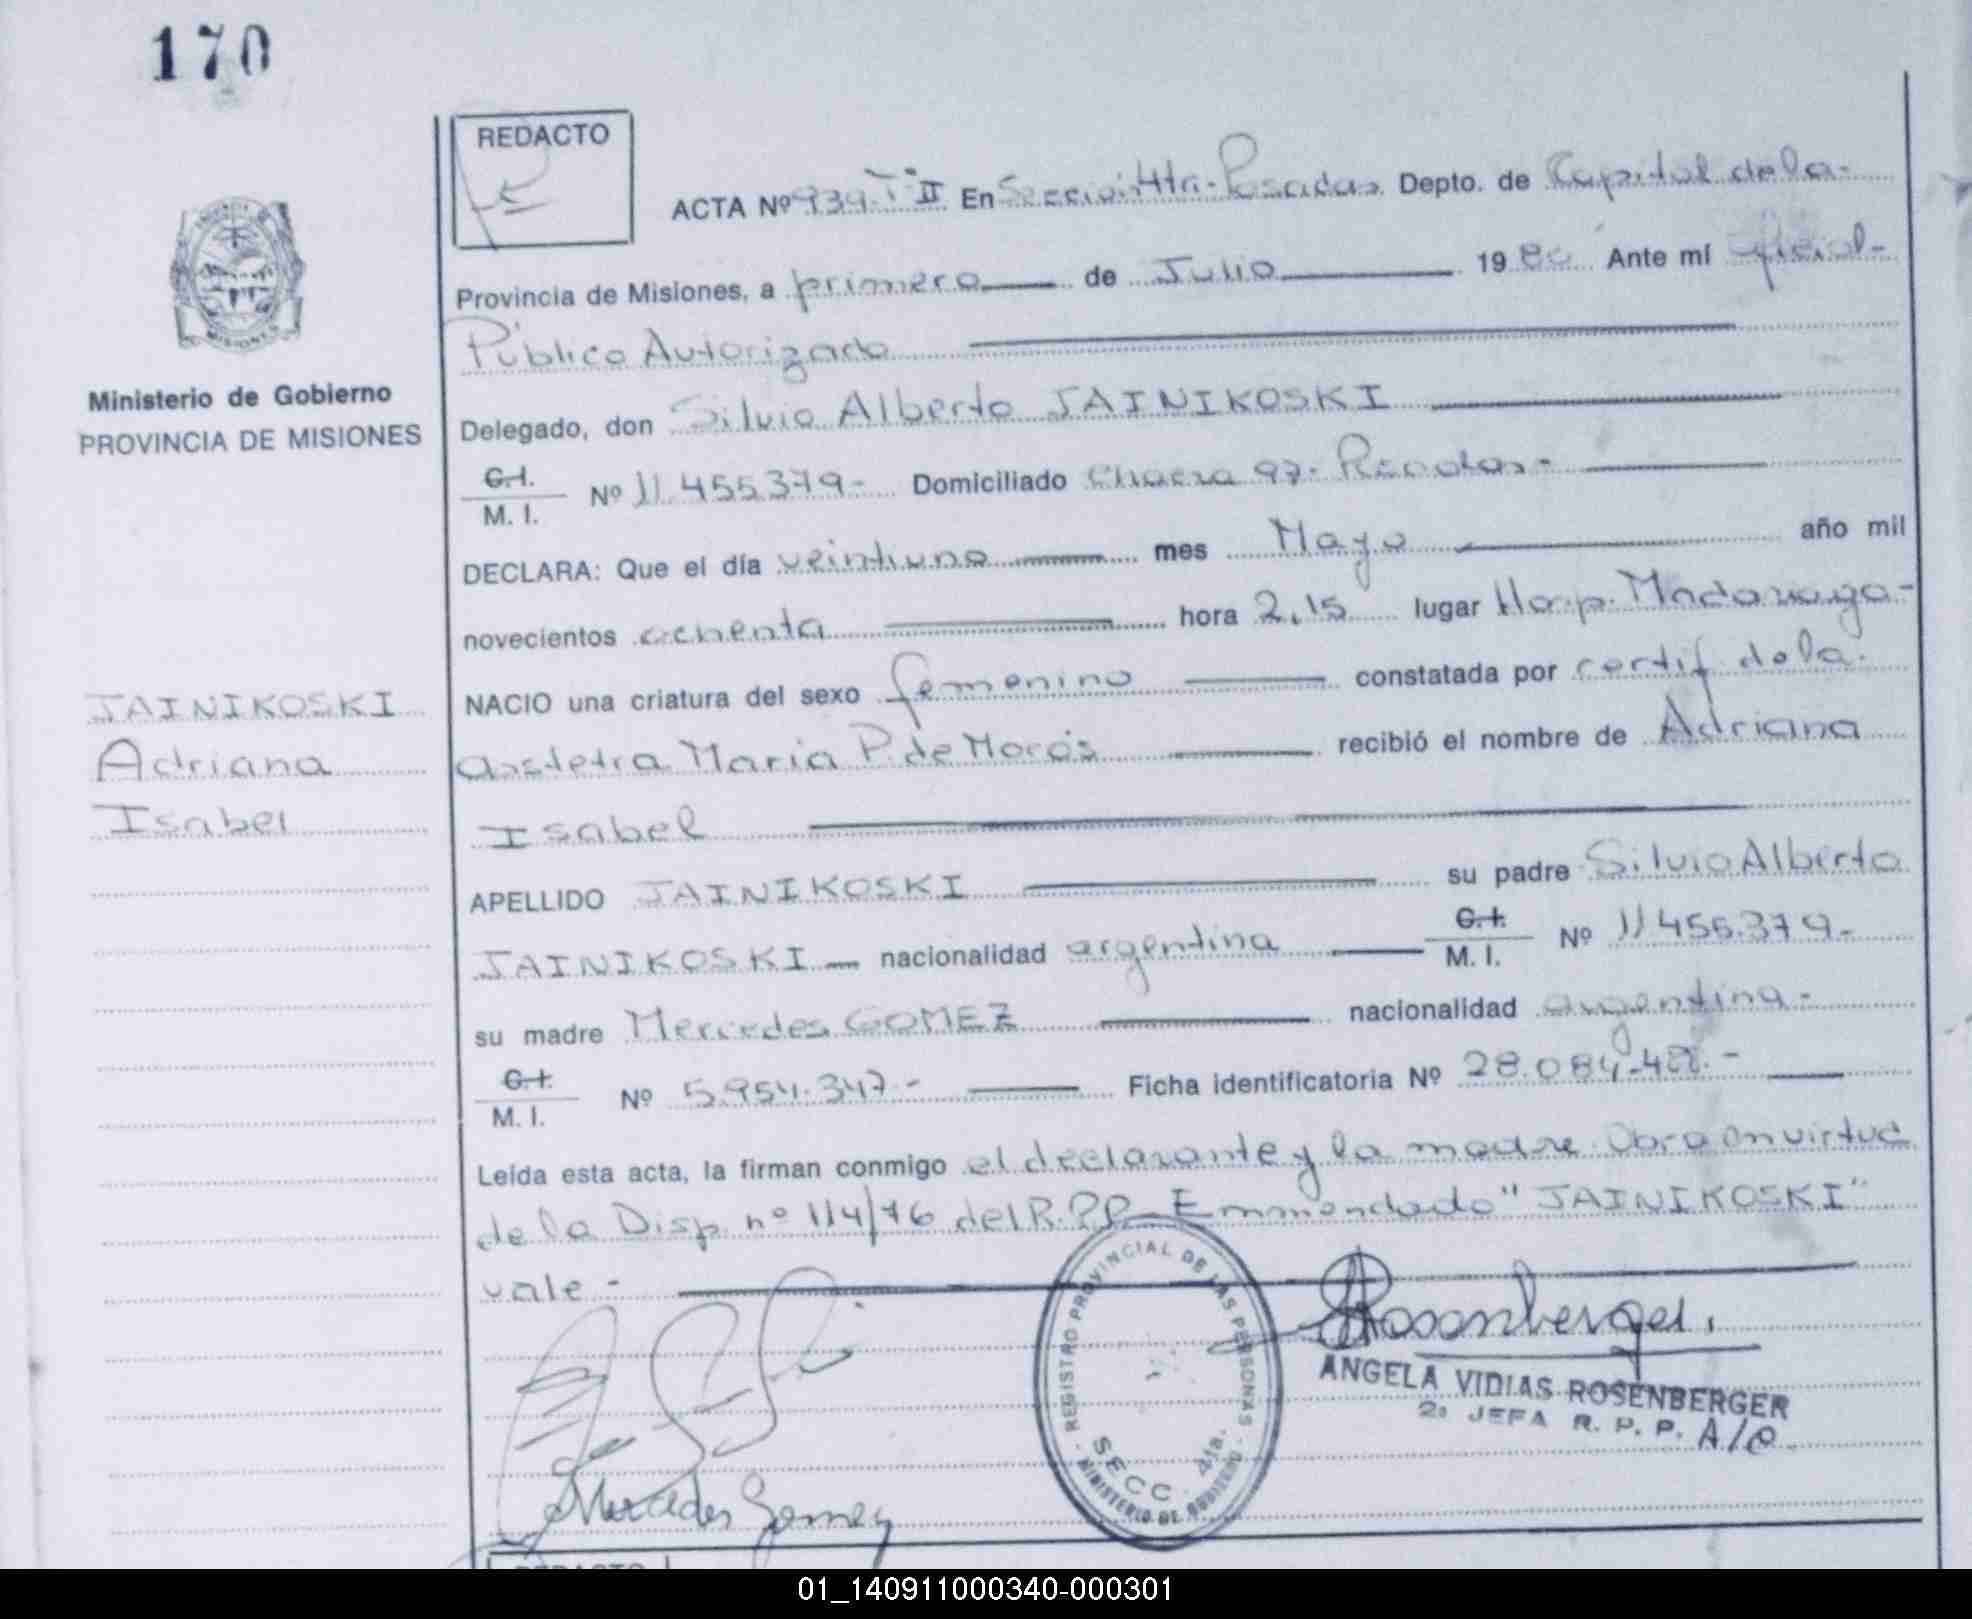 170
REDACTO
ACTA Nº 939 Tº II En Sección 4ta. Posadas. Depto. de Capital de la
Provincia de Misiones, a primero de Julio 1980 Ante mí oficial
Público Autorizado
Delegado, don Silvio Alberto JAINIKOSKI
C.I.
M. I. Nº 11.455.379- Domiciliado Chacra 97- Posadas-
DECLARA: Que el día veintiuno mes Mayo año mil
novecientos ochenta hora 2,15 lugar Hosp. Madariaga-
NACIO una criatura del sexo femenino constatada por certif de la
obstetra Maria P. de constatada recibió el nombre de Adriana
Isabel
APELLIDO JAINIKOSKI su padre Silvio Alberto
JAINIKOSKI nacionalidad argentina C.I.
M. I. Nº 11455.379-
su madre Mercedes GOMEZ nacionalidad argentina-
C.I.
M. I. Nº 5.954.347- Ficha identificatoria Nº 28.084.
Leída esta acta, la firman conmigo el declarante y la madre. Obro en virtud
de la Disp. nº 114/76 del R.P.P. Emmendado "JAINIKOSKI"
vale-
Ministerio de Gobierno
PROVINCIA DE MISIONES
MISIONES
JAINIKOSKI
Adriana
Isabel
REGISTRO PROVINCIAL DE LAS PERSONAS
MINISTERIO DE GOBIERNO
SECC. 4ta.
Rosenberger.
ANGELA VIDIAS ROSENBERGER
2º JEFA R. P. P. A/C.
Mercedes Gomez
REDACTO
01_140911000340-000301